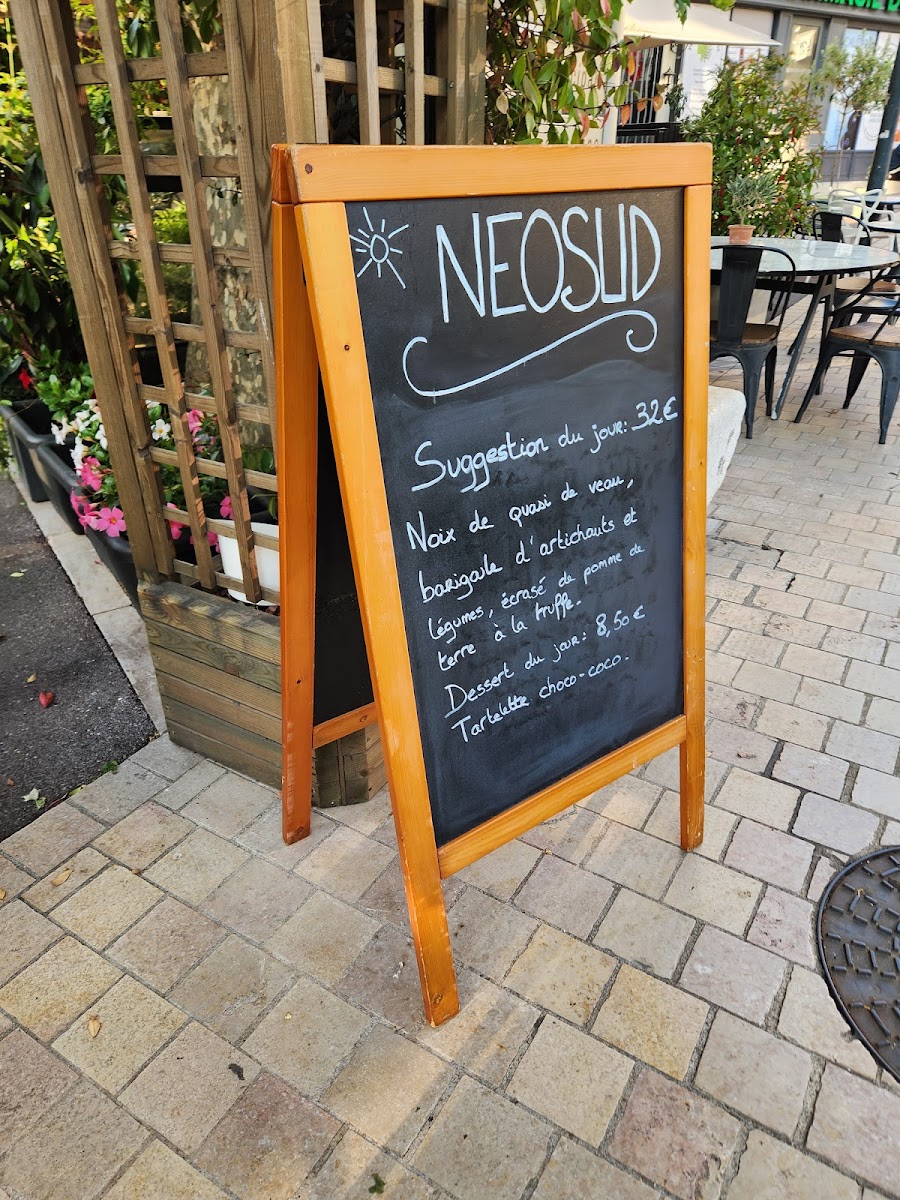 NEOSUD
Suggestion du jour: 32€
Noix de quasi de veau,
barigoule d'artichauts et
légumes, écrasé de pomme de
terre à la truffe.
Dessert du jour: 8,50 €
Tartelette choco-coco.